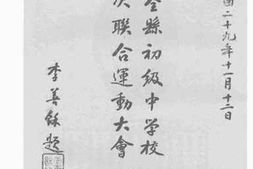 國二十九年十一月十二日
全縣初級中學校
次聯合運動大會
李善餘題